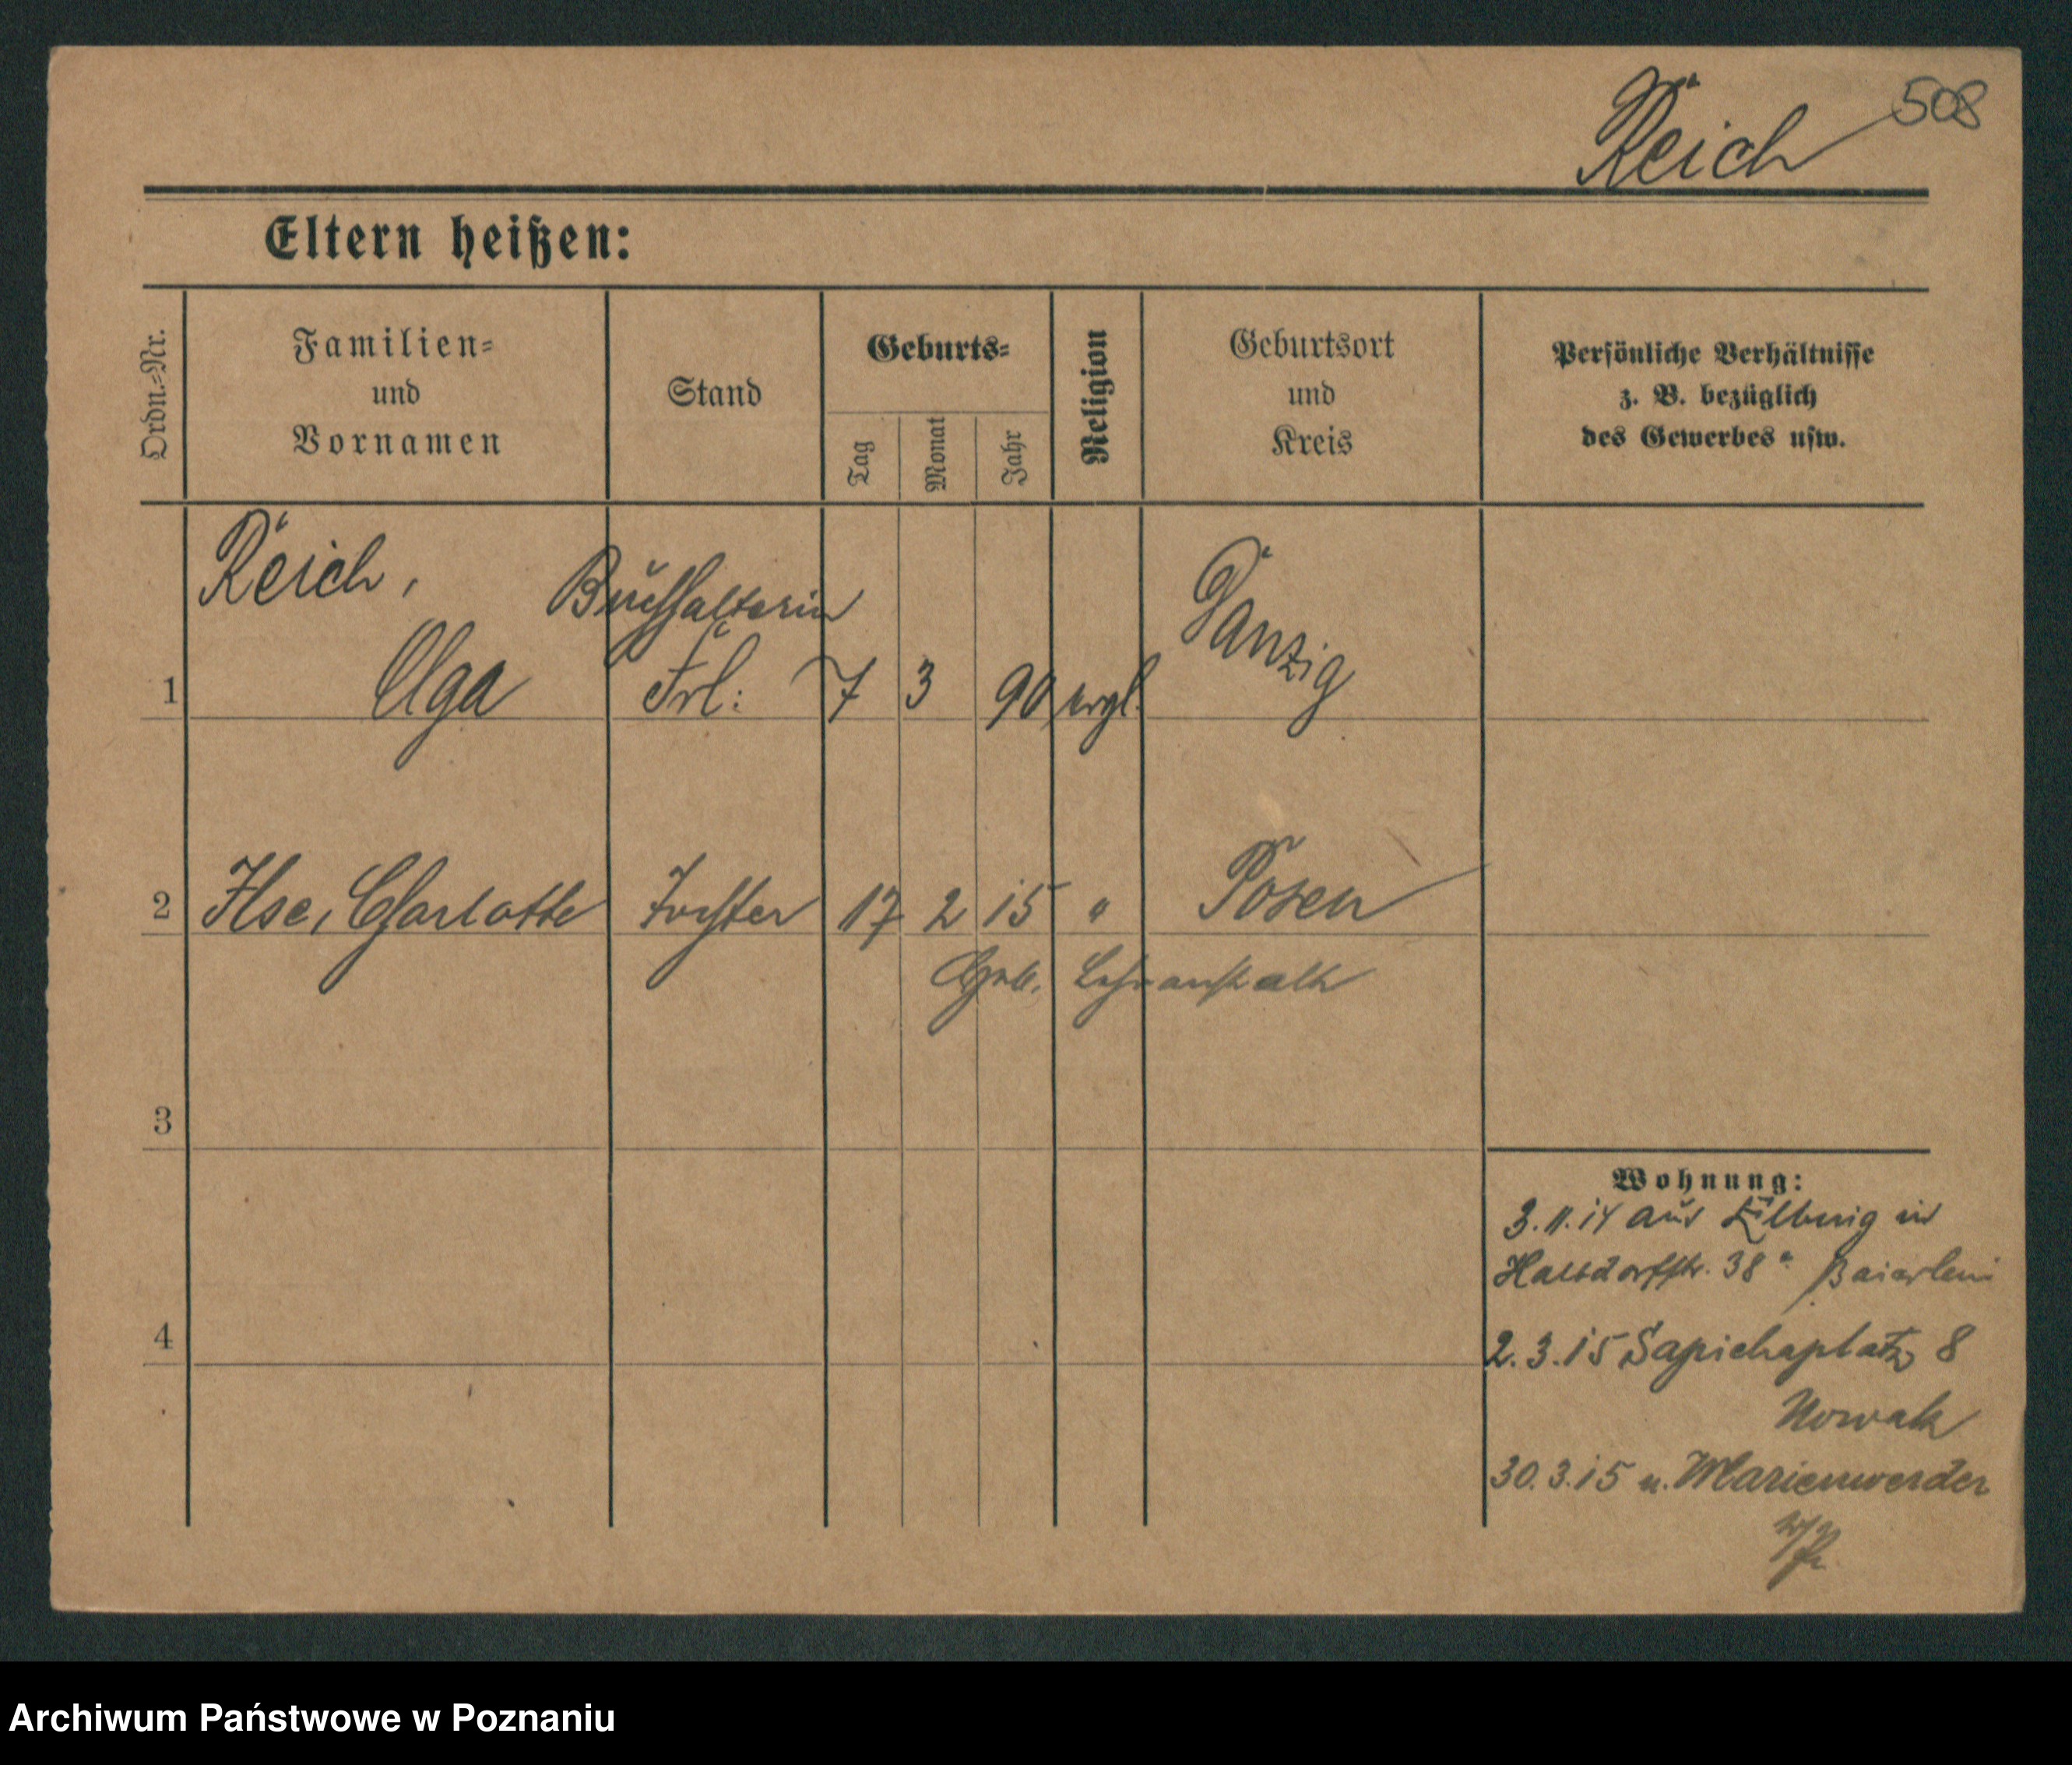 508
Reich
Eltern heißen:
Ordn.=Nr.
Familien=
und
Vornamen
Stand
Geburts=
Tag
Monat
Jahr
Religion
Geburtsort
und
Kreis
Persönliche Verhältnisse
z. B. bezüglich
des Gewerbes usw.
Reich,
Buchhalterin
Danzig
1 Olga Frl: 7 3 90
2 Ilse, Charlotte Tochter 17 2 15 " Posen
Lehranstalt
3
Wohnung:
3.11.14 aus in
38
4
2.3.15 Sapiehaplatz 8
Nowak
30.3.15 n. Marienwerder
W/Pr.
Archiwum Państwowe w Poznaniu